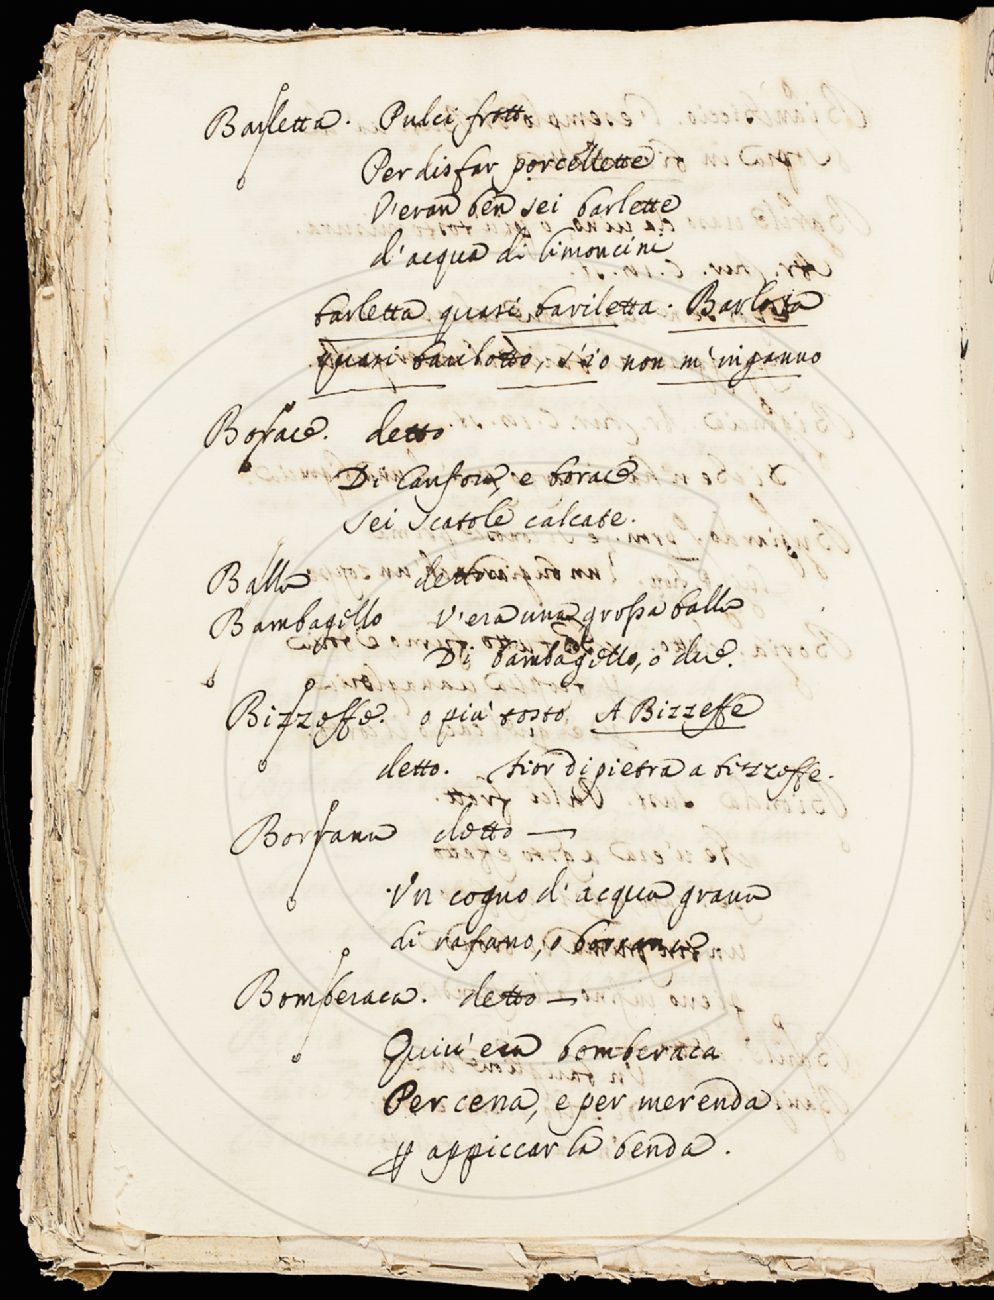 Barletta. Pulci frott.
Per disfar porcellette
V'eran ben sei barlette
d'acqua di limoncini
barletta quasi bariletta. Barlotta
quasi barilotto, s'io non m'inganno
Borace. detto
Di Canfora, e borace
sei scatole calcate.
Balla detto
Bambagello V'era una grossa balla
Di bambagello, o due.
Bizzeffe. o più tosto A Bizzeffe
detto. fior di pietra a bizzeffe.
Borrana detto —
Un cogno d'acqua grana
di rafano, o borrana
Bomberaca. detto —
Quivi era bomberaca
Per cena, e per merenda
p appiccar la benda.